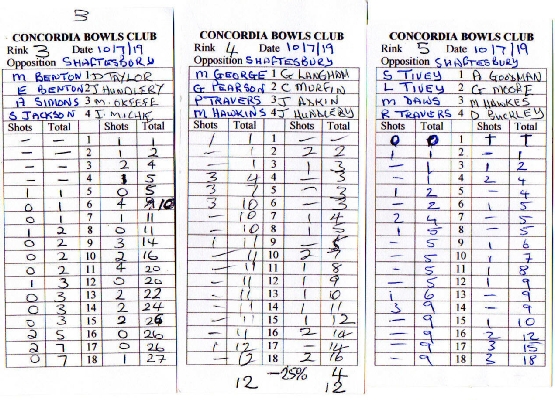 3
CONCORDIA BOWLS CLUB
Rink 3 Date 10/7/19
Opposition SHAFTESBURY
M BENTON 1 D TAYLOR
E BENTON 2 J HUNDLERY
A SIMONS 3 M. OKEEFE
S JACKSON 4 J. MILCHE
Shots Total Shots Total
— — 1 1 1
— — 2 1 2
— — 3 2 4
— — 4 1 5
1 1 5 0 5
0 1 6 4 10
0 1 7 1 11
1 2 8 0 11
0 2 9 3 14
0 2 10 2 16
0 2 11 4 20
1 3 12 0 20
0 3 13 2 22
0 3 14 2 24
0 3 15 2 26
2 5 16 0 26
2 7 17 0 26
0 7 18 1 27
CONCORDIA BOWLS CLUB
Rink 4 Date 10/7/19
Opposition SHAFTESBURY
M GEORGE 1 G LANGHAM
G PEARSON 2 C MURFIN
P TRAVERS 3 J ASKIN
M HAWKINS 4 J HUNDLERY
Shots Total Shots Total
1 1 1 — —
— 1 2 2 2
— 1 3 1 3
3 4 4 — 3
3 7 5 — 3
3 10 6 — 3
— 10 7 1 4
— 10 8 1 5
1 11 9 — 5
— 11 10 2 7
— 11 11 1 8
— 11 12 1 9
— 11 13 1 10
— 11 14 1 11
— 11 15 1 12
— 11 16 2 14
1 12 17 — 14
— 12 18 2 16
12 -25% 4
12
CONCORDIA BOWLS CLUB
Rink 5 Date 10/7/19
Opposition SHAFTESBURY
S TIVEY 1 A GOODMAN
L TIVEY 2 G MOORE
M DAWS 3 M HAWKES
R TRAVERS 4 D BUCKLEY
Shots Total Shots Total
0 0 1 1 1
1 1 2 — 1
— 1 3 1 2
— 1 4 2 4
1 2 5 — 4
— 2 6 1 5
2 4 7 — 5
1 5 8 — 5
— 5 9 1 6
— 5 10 1 7
— 5 11 1 8
— 5 12 1 9
1 6 13 — 9
3 9 14 — 9
— 9 15 1 10
— 9 16 2 12
— 9 17 3 15
— 9 18 3 18